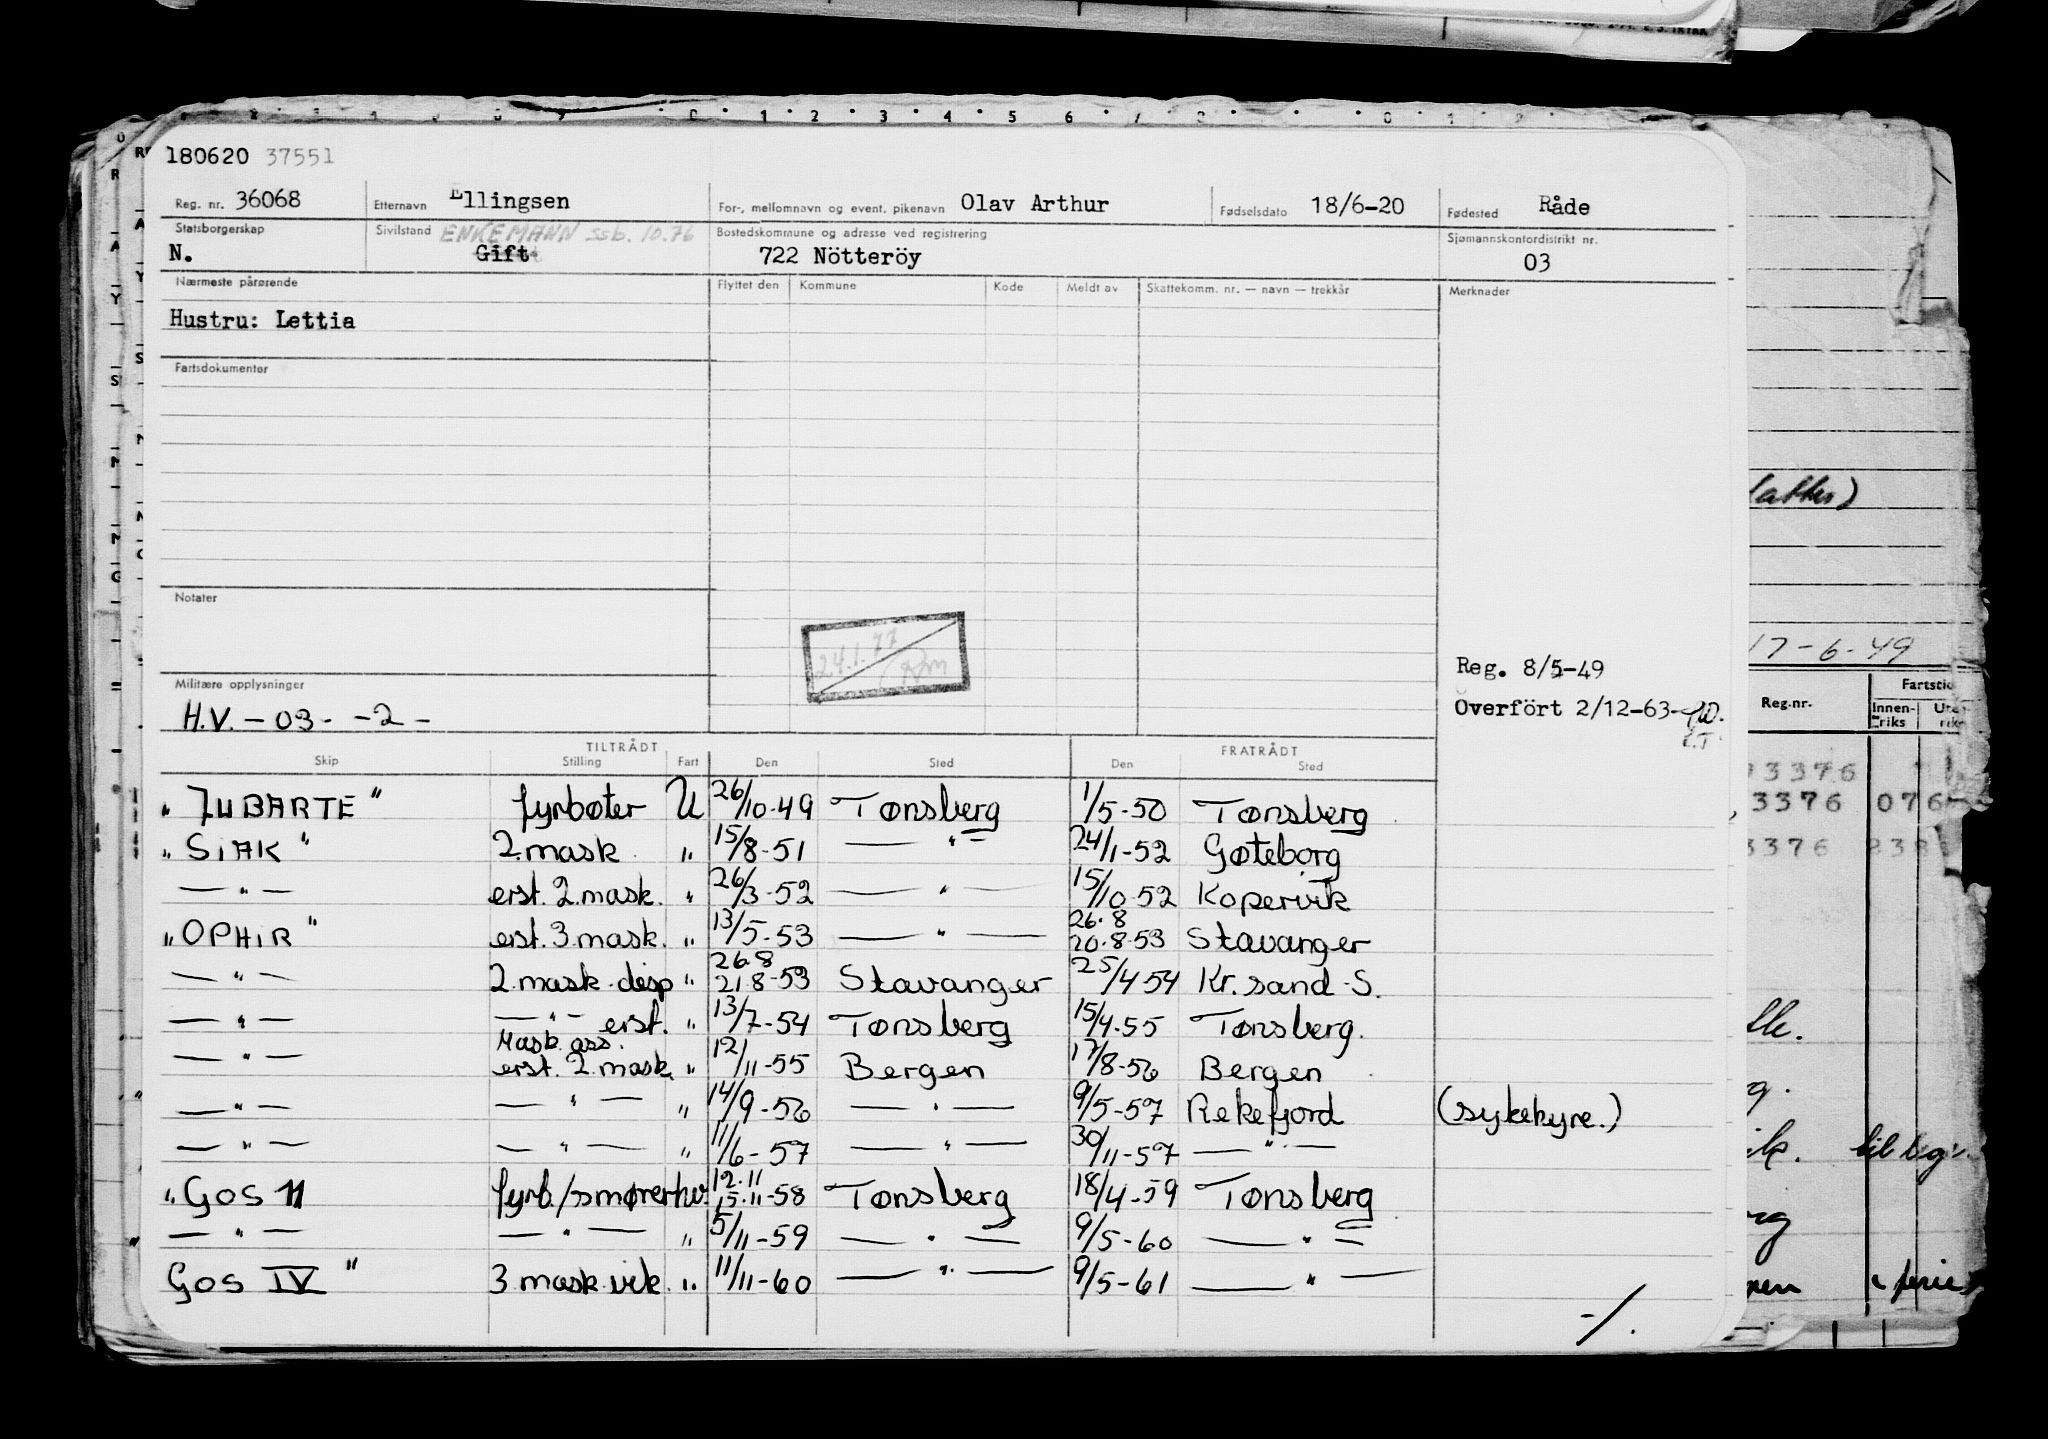 180620 37551
Reg. nr. 36068 Etternavn Ellingsen For-, mellomnavn og event. pikenavn Olav Arthur Fødselsdato 18/6-20 Fødested Råde
Statsborgerskap N. Sivilstand ENKEMANN ssb. 10.76 Gift Bostedskommune og adresse ved registrering 722 Nötteröy Sjømannskontordistrikt nr. 03
Nærmeste pårørende Flyttet den Kommune Kode Meldt av Skattekomm. nr. — navn — trekkår Merknader
Hustru: Lettia
Fartsdokumenter
Notater
24.1.77
Reg. 8/5-49
Militære opplysninger
Overfört 2/12-63-
H.V. - 03 - -2-
TILTRÅDT FRATRÅDT
Skip Stilling Fart Den Sted Den Sted
"JUBARTE" fyrbøter U 26/10-49 Tønsberg 1/5-50 Tønsberg
"SIAK" 2.mask. " 15/8-51 —"— 24/1-52 Gøteborg
—"— erst. 2.mask. " 26/3-52 —"— 15/10-52 Kopervik
"OPHIR" erst. 3.mask. " 13/5-53 —"— 26.8 20.8-53 Stavanger
—"— 2.mask. disp " 26.8 21.8-53 Stavanger 25/4-54 Kr.sand-S.
—"— —"— erst. " 13/7-54 Tønsberg 15/4-55 Tønsberg.
—"— Mask. ass. erst. 2.mask. " 12/11-55 Bergen 17/8-56 Bergen
—"— —"— " 14/9-56 —"— 9/5-57 Rekefjord (sykehyre.)
—"— —"— " 11/6-57 —"— 30/11-57 —"—
"GOS 11 fyrb./smører hv. 12.11 15.11-58 Tønsberg 18/4-59 Tønsberg
—"— —"— " 5/11-59 —"— 9/5-60 —"—
GOS IV" 3.mask.vik. " 11/11-60 —"— 9/5-61 —"—
-/.
17-6-49
Reg.nr. Fartstid
Innen-riks
3376
3376 076
3376